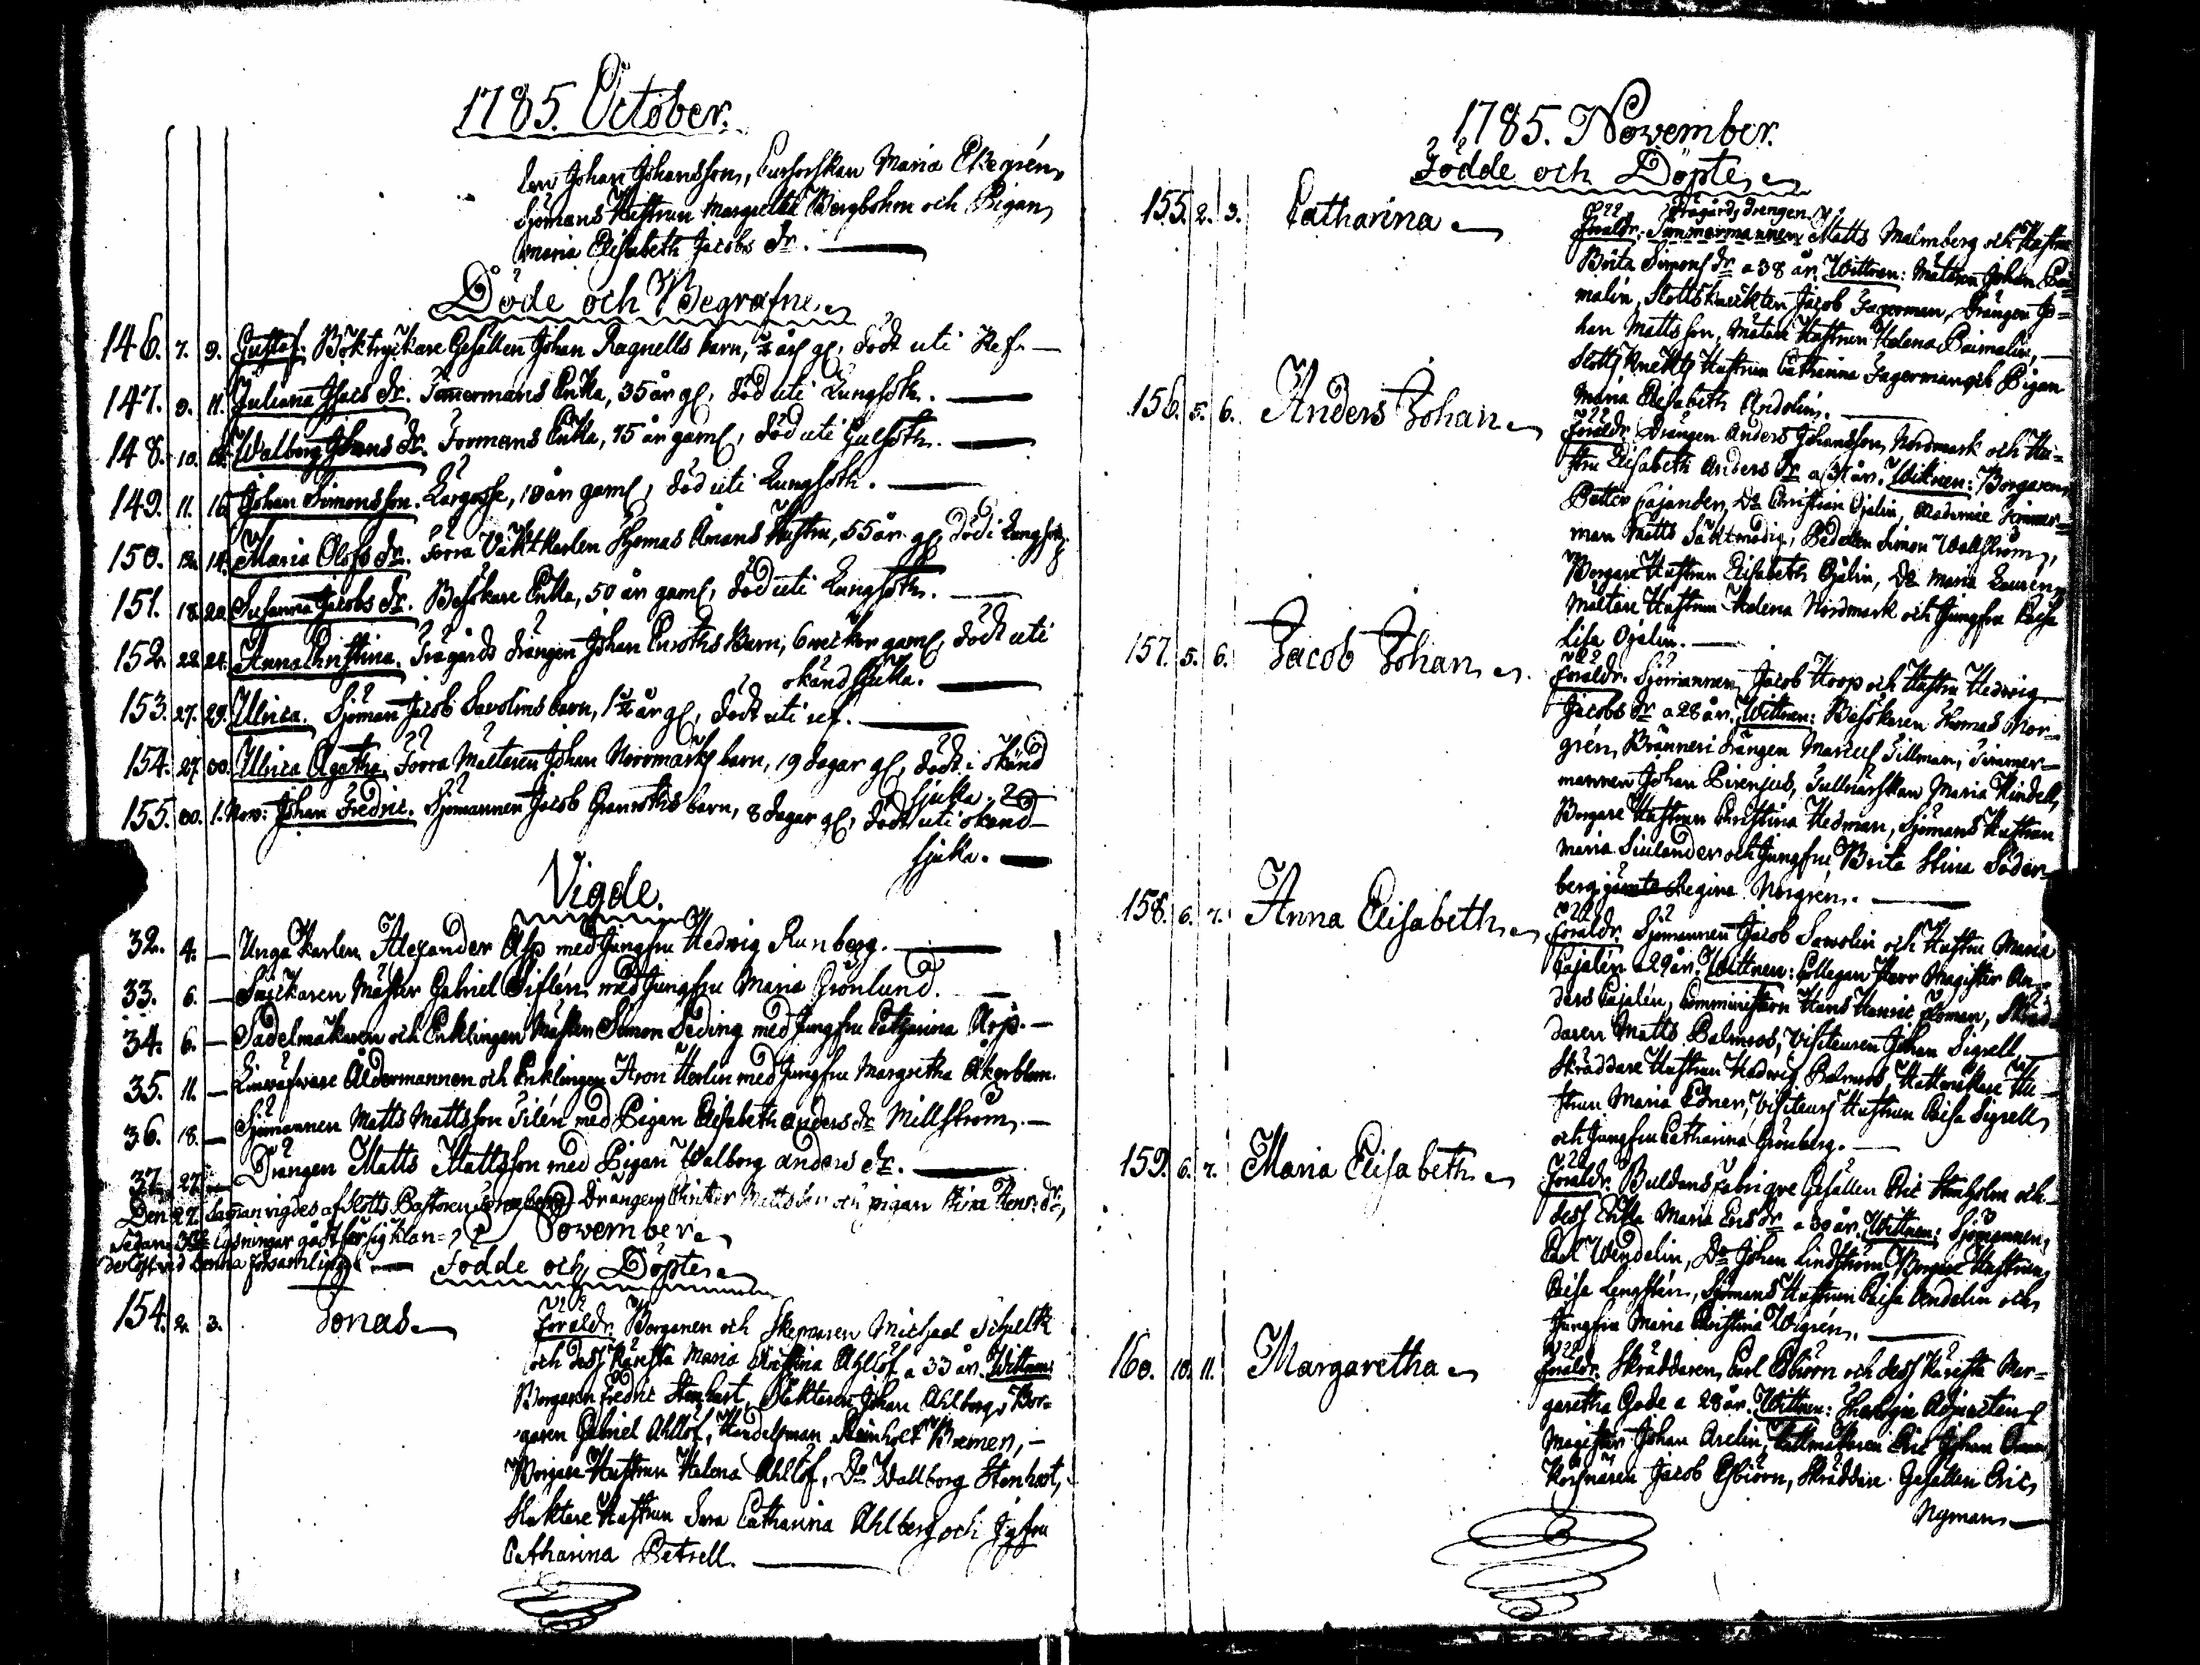 1785. October.
Johan Johansson, Maria Ekegrén,
Sjömans Hustrun Margretha Bergbohm och Pigan
Maria Elisabeth Jacobs dr.
Döde och Begrafne.
146. 7. 9. Gustaf. Boktryckare Gesällen Johan Ragnells barn, år gl, dödt uti Ref.
147. 9. 11. Juliana Isacs dr. Timmermans Enka, 35 år gl, död uti Lungsoth.
148. 10. Walborg Johans dr. Formans Enka, 75 år gaml, död uti Gulsoth.
149. 11. 16. Johan Simonsson. 18 år gaml, död uti Lungsoth.
150. 12. 14. Maria Olofs dr. Förra Vaktkarlen Thomas Åmans Hustru, 55 år gl, död i Lungsoth.
151. 18. 20. Susanna Jacobs dr. Besökare Enka, 50 år gaml, död uti Lungsoth.
152. 22. 24. Anna Christina. Trägårds drängen Johan Enroths Barn, 6 veckor gaml, dödt uti
okänd sjuka.
153. 27. 29. Ulrica. Sjöman Jacob Savolins barn, 1 1/2 år gl, dödt uti ref.
154. 27. 30. Ulrica Agatha. Förra Mältaren Johan Norrmarks barn, 19 dagar gl, dödt i okänd
sjuka.
155. 30. 1. Nov: Johan Fredric. Sjömannen Jacob Granroths barn, 8 dagar gl, dödt uti okänd
sjuka.
Vigde.
32. 4. — Unga Karlen Alexander Alp med Jungfru Hedwig Runberg.
33. 6. — Snickaren Mäster Gabriel Siflén med Jungfru Maria Grönlund.
34. 6. — Sadelmakaren och Enklingen Mäster Simon Seding med Jungfru Catharina Kop.
35. 11. — Linwäfware Åldermannen och Enklingen Aron Herlin med Jungfru Margretha Åkerblom.
36. 18. — Sjömannen Matts Mattsson Tilén med Pigan Elisabeth Anders dr Millström.
37. 27. — Drängen Matts Mattsson med Pigan Walborg Anders dr.
Den 27. vigdes af Slotts Pastoren Drängen Mattsson och pigan Stina Henr: dr,
sedan 3ne Lysningar gådt för sig
wid denna församling.
November.
Födde och Döpte.
154. 2. 3. Jonas.
Föräldr. Borgaren och Skepparen Michael Schultz
och dess Käresta Maria Christina Ahllöf a 33 år. Wittnen:
Borgaren Fredric Stenhart, Slaktaren Johan Ahlberg, Bor-
garen Gabriel Ahllöf, Handelsman Reinholt Bremer,
Borgare Hustrun Helena Ahllöf, Do Wallborg Stenhart,
Slaktare Hustrun Sara Catharina Ahlberg och Jgfru
Catharina Petrell.
1785. November.
Födde och Döpte.
155. 2. 3. Catharina
Trägårds drengen
Föräldr: Timmermannen Matts Malmberg och Hustru
Brita Simons dr a 38 år. Wittnen: Mältaren Johan Pai-
malin, Slottsknekten Jacob Fagerman, Drängen Jo-
han Mattsson, Mältare Hustrun Helena Paimalin,
Slotts Knekts Hustrun Catharina Fagerman och Pigan
Maria Elisabeth Andolin.
156. 5. 6. Anders Johan
Föräldr. Drängen Anders Johansson Nordmark och Hu-
stru Elisabeth Anders dr a 31 år. Witnen: Borgaren
Petter Cajander, Do Christian Ojalin, Academie Timmer-
man Matts Saktmodig, Bedellen Simon Wallström,
Borgare Hustrun Elisabeth Ojalin, Do Maria Lauren,
Mältare Hustrun Helena Nordmark och Jungfru Caisa
Lisa Ojalin.
157. 5. 6. Jacob Johan
Föräldr. Sjömannen Jacob Hoop och Hustru Hedwig
Jacobs dr a 28 år. Wittnen: Besökaren Thomas Nor-
grén, Bränneri drängen Marcus Tillman, Timmer-
mannen Johan Pirenius, Maria Hindell,
Borgare Hustrun Christina Hedman, Sjömans Hustrun
Maria Siulander och Jungfru Brita Stina Söder-
berg, Regina Norgrén.
158. 6. 7. Anna Elisabeth
Föräldr. Sjömannen Jacob Sawolin och Hustru Maria
Cajalén a 29 år. Wittnen: Collegan Herr Magister An-
ders Cajalén, Comministern Hans Henric Homan, Skräd-
daren Matts Palmroos, Visiteuren Johan Sigrell,
Skräddare Hustrun Hedwig Palmroos, Hattmakare Hu-
strun Maria Ebner, Visiteurs Hustrun Caisa Sigrell
och Jungfru Catharina Grönberg.
159. 6. 7. Maria Elisabeth
Föräldr. Buldans fabriqve Gesällen Eric Stenholm och
dess Enka Maria Erics dr a 30 år. Wittnen: Sjömannen
Carl Wendelin, Do Johan Lindström, Borgare Hustrun
Caisa Lengstén, Sjömans Hustrun Caisa Wendelin och
Jungfru Maria Christina Wigrén.
160. 10. 11. Margaretha
Föräldr. Skräddaren Carl Esbiörn och dess Käresta Mar-
garetha Gode a 28 år. Wittnen: Adjuncten
Magister Johan Arelin, Eric Johan
Jacob Esbiörn, Skräddare Gesällen Eric
Nyman